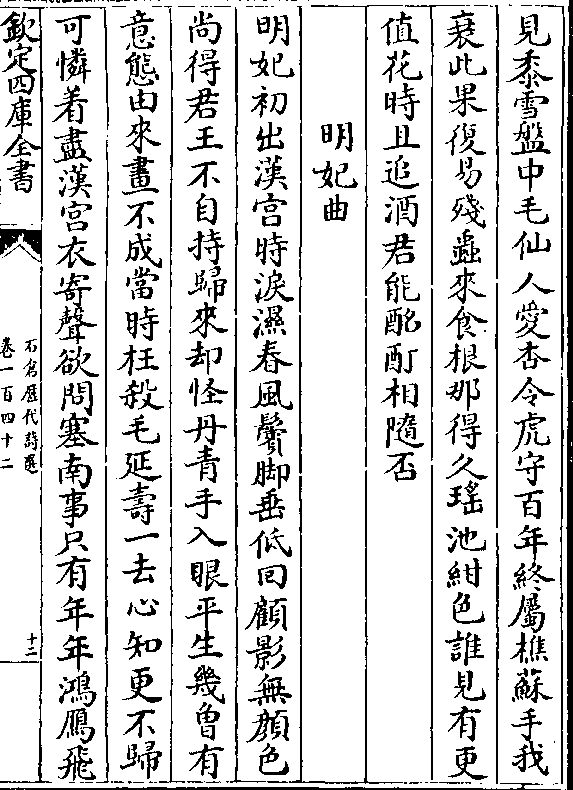 見黍雪盤中毛仙人愛杏令虎守百年終屬樵蘇手我
衰此果復易殘蟲來食根那得久瑤池紺色誰見有更
值花時且追酒君能酩酊相隨否
明妃曲
明妃初出漢宮時淚濕春風鬢脚垂低回顧影無顔色
尚得君王不自持歸來却怪丹青手入眼平生幾曾有
意態由來畫不成當時枉殺毛延壽一去心知更不歸
可憐着盡漢宮衣寄聲欲問塞南事只有年年鴻鴈飛
欽定四庫全書
石倉歷代詩選
卷一百四十二
十二